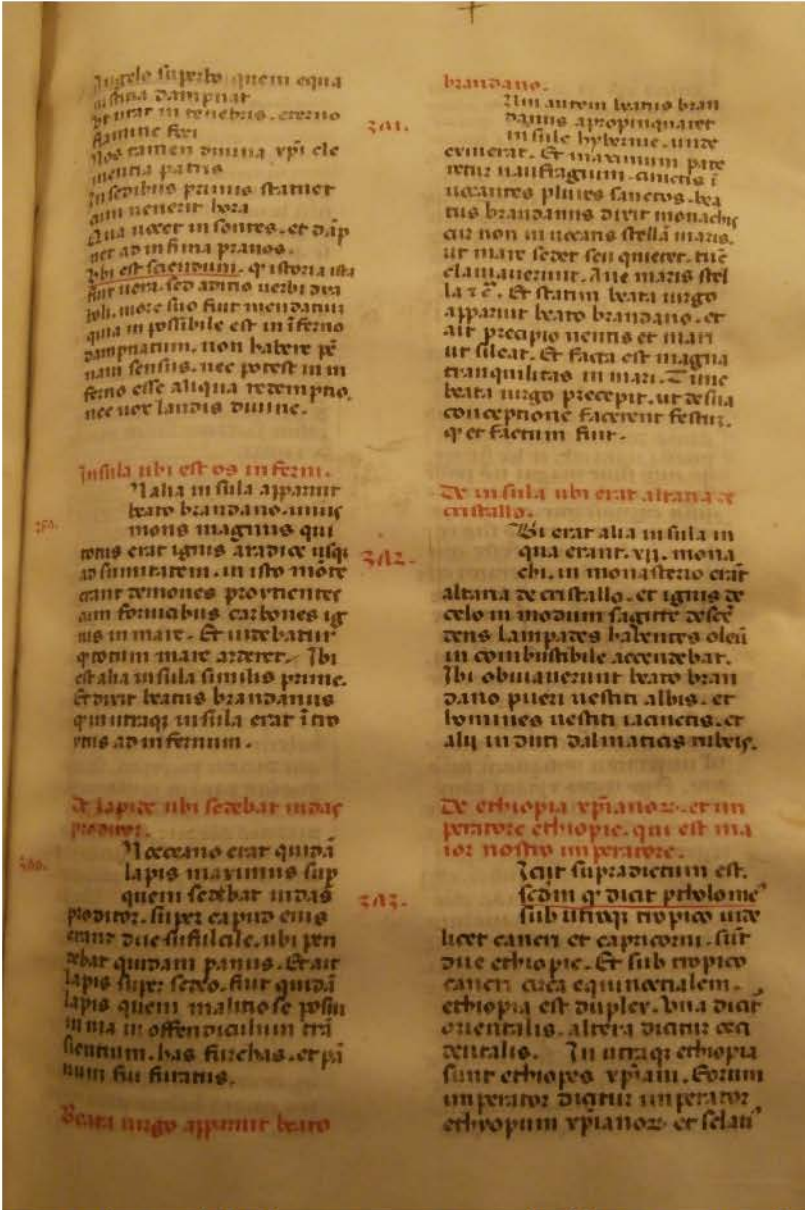 Angelo superbo quem equa
iustitia dampnat
et urar in tenebris. eterno
flamine fixi
Nos tamen diuina xp̄i cle
mentia patris
In sedibus primis statuet
cum uenerit hora
Qua uocet insontes. et dāp
net ad infima prauos.
Vbi est sciendum. qͥ istoria ista
fiat uera. sed aditio uerbi dya
boli. more suo fiat mendatiuz
quia in possibile est in īferno
dampnatum. non habere pē
nam sensus. nec potest in in
ferno esse aliqua redemptio.
nec uox laudis diuine.
Insula ubi est os inferni.
260.
N alia insula apparuit
beato brandano. unus
mons magnus qui
totus erat ignis a radice usqi
ad sumitatem. in isto mōte
erant demones proycientes
cum fornacibus carbones ig
nis in mare. Et uidebatur
qͥ totum mare arderet. Ibi
est alia insula similis prime.
Et dixit beatus brandanus
qͥ in utraqi insula erat ītro
ytus ad infernum.
De lapide ubi sedebat iudas
proditor.
N occeano erat quidā
lapis maximus sup
quem sedebat iudas
proditor. super caput eius
erant due sufulcile. ubi pen
debat quidam panus. Et ait
lapis super sedeo. fuit quidā
lapis quem malitiose posui
in uia in offendiculum trā
sientium. has furchas. et pā
num fui furatus.
Beata uirgo apparuit beato
brandano.
261.
Um autem beatus bran
danus apropinquaret
insule hybernie. unde
exiuerat. Et maximum pate
retur naufragium. cunctis ī
uocantes plures sanctos. bea
tus brandanus dixit monachis
cur non inuocans stellā maris.
ut mare sedet seu quietet. tūc
clamauerunt. Aue maris stel
la ⁊c̄. Et statim beata uirgo
apparuit beato brandano. et
ait precipio uentis et mari
ut sileat. Et facta est magna
tranquilitas in mari. Tunc
beata uirgo precepit. ut de sua
conceptione facerent festuz.
qͥ et factum fuit.
De insula ubi erat altaria de
cristallo.
262.
Bi erat alia insula in
qua erant. vii. mona
chi. in monasterio erāt
altaria de cristallo. et ignis de
celo in modum sagitte descē
dens lampades habentes oleū
in combustibile accendebat.
Ibi obuiauerunt beato bran
dano pueri uestiti albis. et
homines uestiti iacinctis. et
alij induti dalmaticis rubeis.
De ethiopia xp̄ianoꝝ. et im
peratore ethiopie. qui est ma
ior nostro imperatore.
263.
Icut supradictum est.
secdm qͥ dicit ptholome9
sub utroqi tropico uide
licet cancri et capricorni. sūt
due ethiopie. Et sub tropico
cancri circa equinoctialem.
ethiopia est duplex. Vna dicit
orientalis. altera dicitur occi
dentalis. In utraqi ethiopia
sunt ethiopes xp̄iani. Eorum
imperator dicitur imperator
ethyopum xp̄ianoꝝ et selan